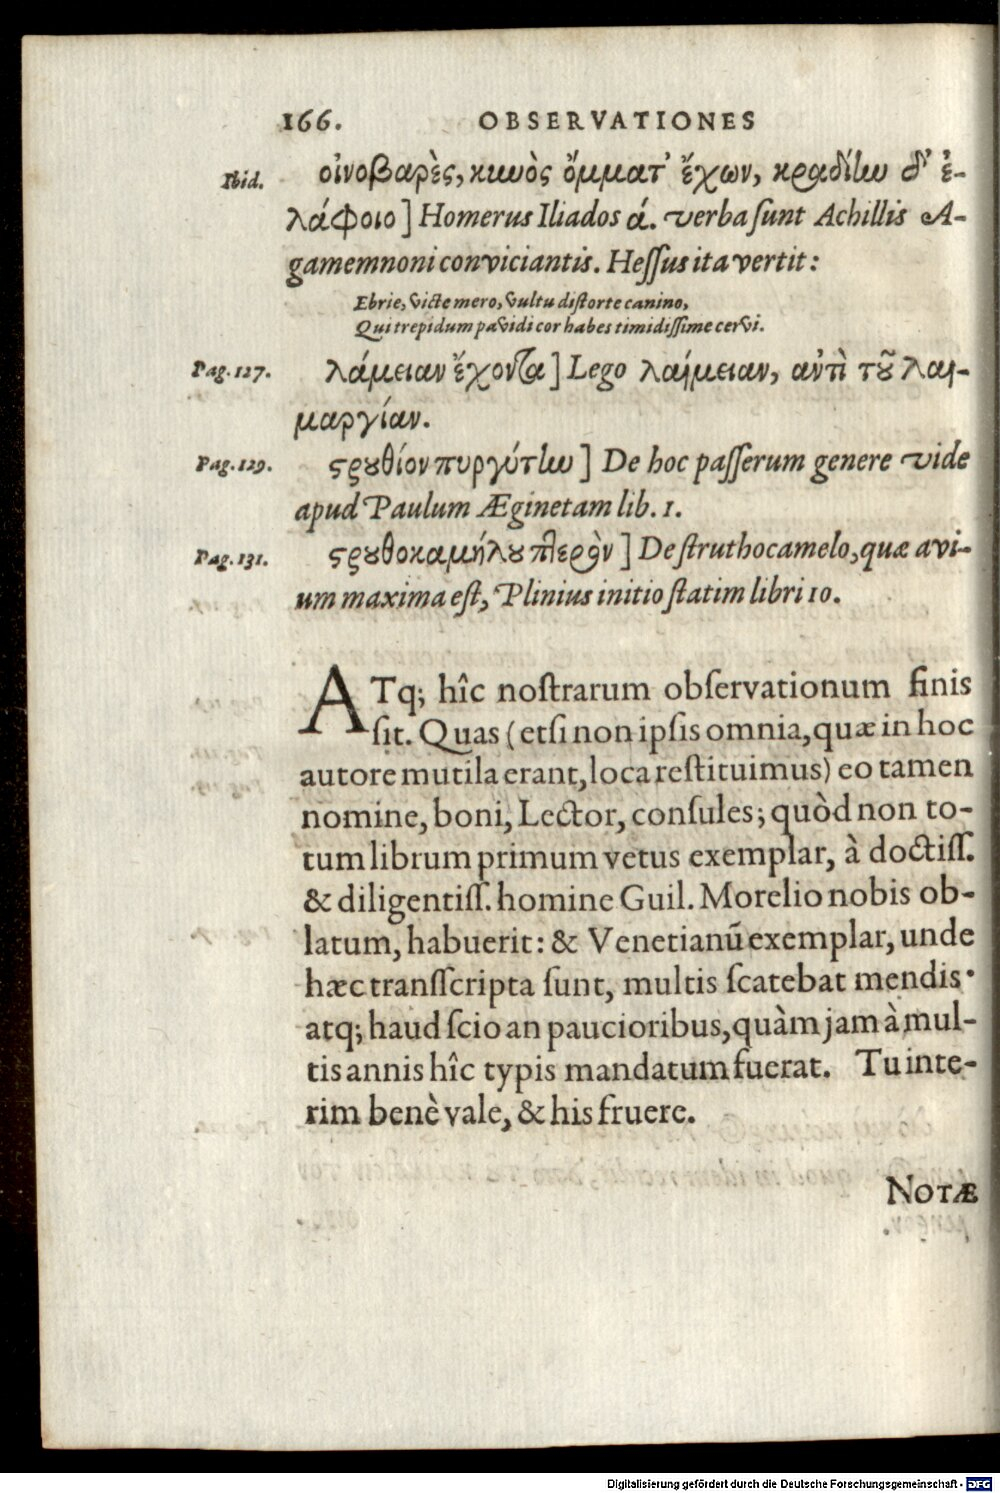 166. OBSERVATIONES
Ibid. οἰνοβαρὲς, κυνὸς ὄμματ' ἔχων, κραδίην δ' ἐ-
λάφοιο] Homerus Iliados ά. verba ſunt Achillis A-
gamemnoni conviciantis. Heſſus ita vertit:
Ebrie, victe mero, vultu diſtorte canino,
Qui trepidum pavidi cor habes timidiſſime cervi.
Pag. 127. λάμειαν ἔχοντα] Lego λαίμειαν, αντὶ τȣ͂ λαι-
μαργίαν.
Pag. 129. ϛρȣθίον πυργύτην] De hoc paſſerum genere vide
apud Paulum Æginetam lib. 1.
Pag. 131. ϛρȣθοκαμήλȣ πτερὸν] De ſtruthocamelo, quæ avi-
um maxima eſt, Plinius initio ſtatim libri 10.
ATq; hîc noſtrarum obſervationum finis
ſit. Quas (etſi non ipſis omnia, quæ in hoc
autore mutila erant, loca reſtituimus) eo tamen
nomine, boni, Lector, conſules; quòd non to-
tum librum primum vetus exemplar, à doctiſſ.
& diligentiſſ. homine Guil. Morelio nobis ob-
latum, habuerit: & Venetianũ exemplar, unde
hæc tranſſcripta ſunt, multis ſcatebat mendis·
atq; haud ſcio an paucioribus, quàm jam à mul-
tis annis hîc typis mandatum fuerat. Tu inte-
rim benè vale, & his fruere.
NOTÆ
Digitalisierung gefördert durch die Deutsche Forschungsgemeinschaft - DFG